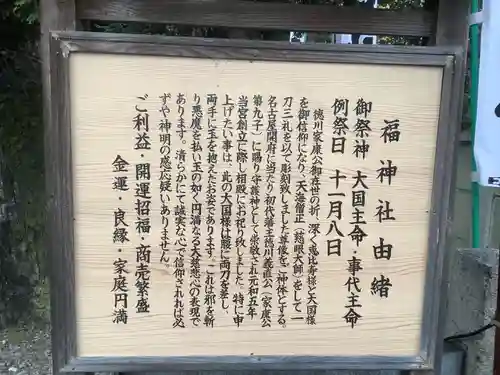 福神社由緒
御祭神 大国主命・事代主命
例祭日 十一月八日
徳川家康公御在世の折、深く恵比寿様と大国様
を御信仰になり、天海僧正(慈眼大師)をして一
刀三礼を以て彫刻致しました尊像をご神体とする。
名古屋開府に当たり初代藩主徳川義直公(家康公
第九子)に賜り守護神として崇敬され元和五年
当宮創立に際し相殿にお祀り致しました。特に申
上げたい事は、此の大国様は腰に両刀を差し、
両手に宝珠を抱えたお姿であります。これは邪を斬
り悪魔を払い玉の如く円満なる大慈悲心の表現で
あります。清らかにて誠実な心で信仰されれば必
ずや神明の感応疑いありません。
ご利益・開運招福・商売繁盛
金運・良縁・家庭円満